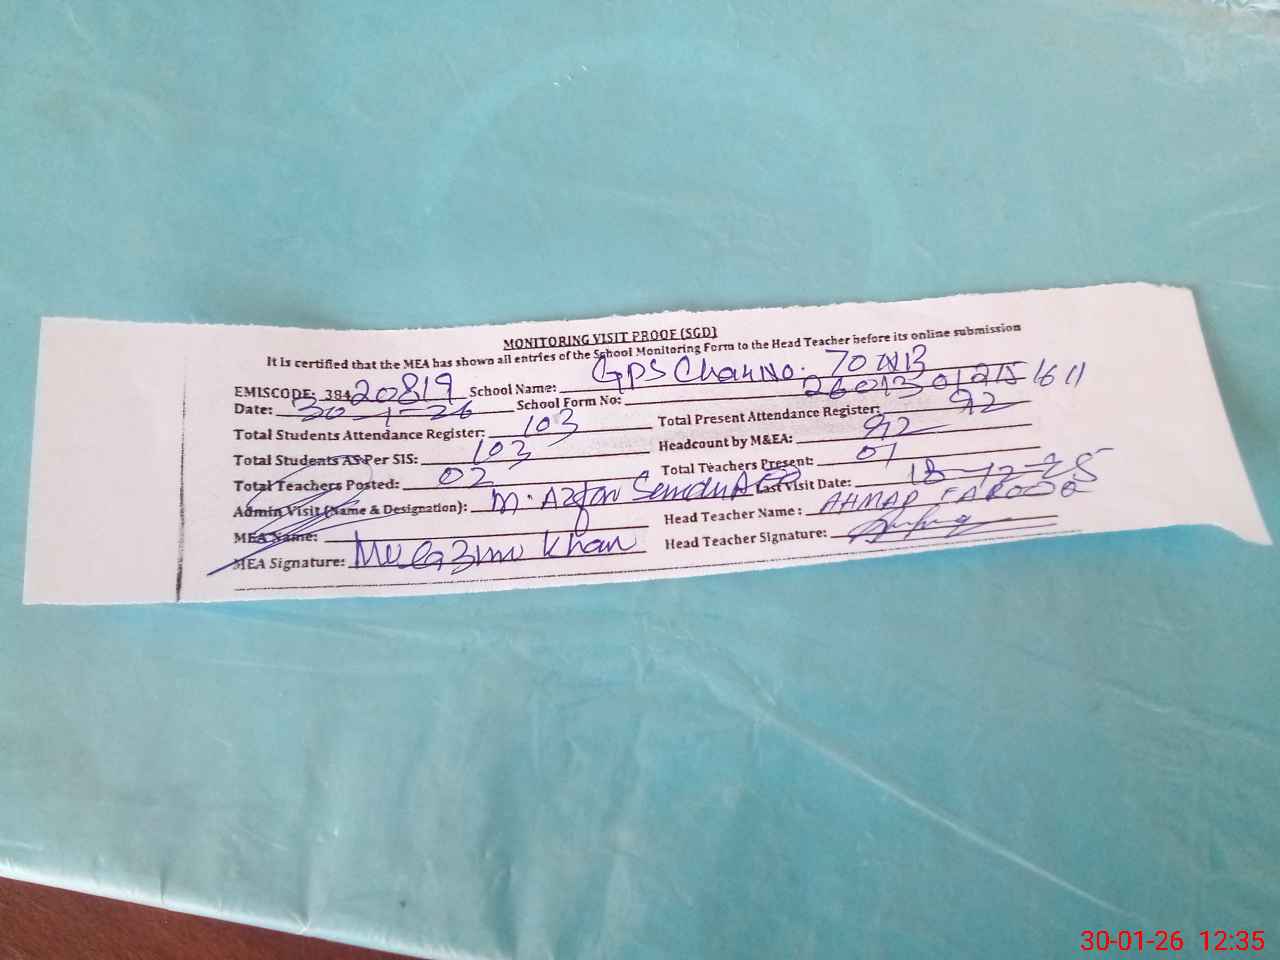 MONITORING VISIT PROOF (SGD)
It is certified that the MEA has shown all entries of the School Monitoring Form to the Head Teacher before its online submission
EMISCODE: 38420819 School Name: GPS Chak No. 70 NB
Date: 30-1-26 School Form No: 1611
Total Students Attendance Register: 103 Total Present Attendance Register: 92
Total Students AS Per SIS: 103 Headcount by M&EA: 92
Total Teachers Posted: 02 Total Teachers Present: 01
Admin Visit (Name & Designation): M. Last Visit Date: 18-12-25
MEA Name: Head Teacher Name: AHMAD FAROOQ
MEA Signature: Khan Head Teacher Signature:
30-01-26 12:35